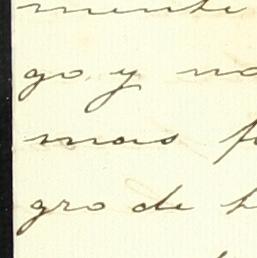 mente
go y no
mas
gro de